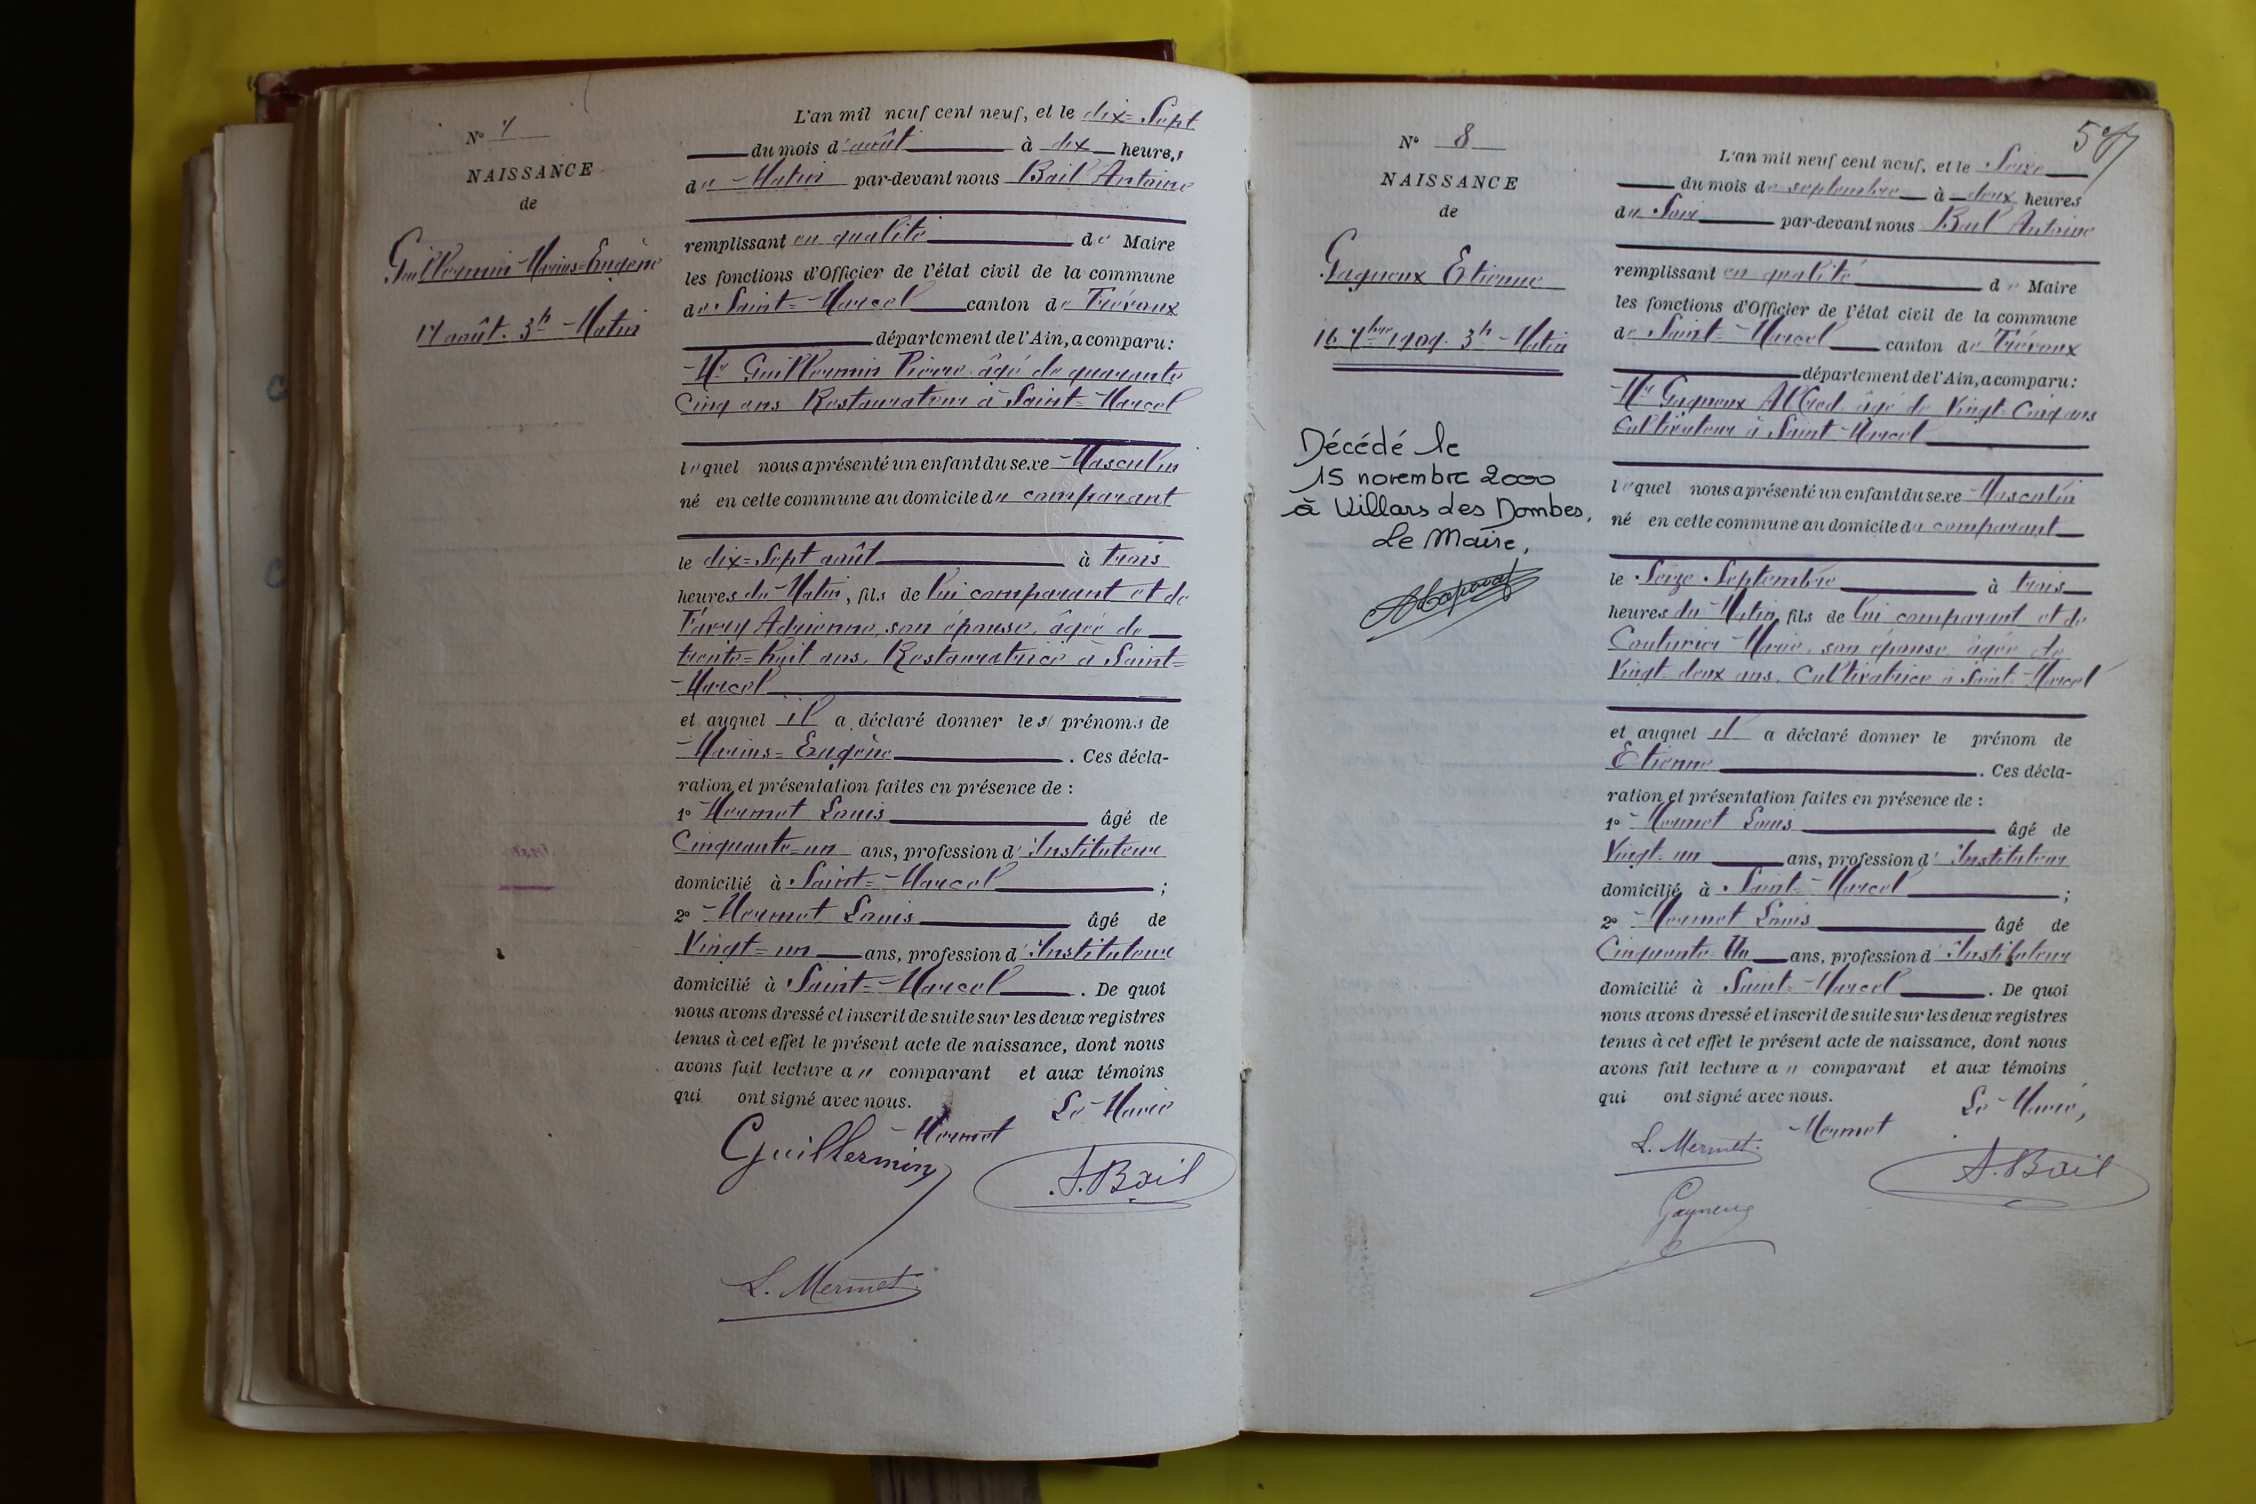 N° 7
NAISSANCE
de
Guillermin Marius=Eugène
17 août. 3h Matin
L'an mil neuf cent neuf, et le dix=Sept
du mois d'août à dix heures
du Matin par-devant nous Bail Antoine
remplissant en qualité de Maire
les fonctions d'Officier de l'état civil de la commune
de Saint=Marcel canton de Trévoux
département de l'Ain, a comparu:
Mr Guillermin Pierre âgé de quarante
Cinq ans Restaurateur à Saint=Marcel
lequel nous a présenté un enfant du sexe Masculin
né en cette commune au domicile du comparant
le dix=Sept août à trois
heures du Matin, fils de lui comparant et de
Favry Adrienne, son épouse, âgée de
trente=huit ans, Restauratrice à Saint=
Marcel
et auquel il a déclaré donner les prénoms de
Marius=Eugène. Ces décla-
ration et présentation faites en présence de :
1° Mermet Louis âgé de
Cinquante=un ans, profession d'Instituteur
domicilié à Saint=Marcel ;
2° Mermet Louis âgé de
Vingt=un ans, profession d'Instituteur
domicilié à Saint=Marcel. De quoi
nous avons dressé et inscrit de suite sur les deux registres
tenus à cet effet le présent acte de naissance, dont nous
avons fait lecture au comparant et aux témoins
qui ont signé avec nous.
Le Maire
Mermet
Guillermin
A. Bail
L. Mermet
587
N° 8
NAISSANCE
de
Gagneux Etienne
16 7bre 1909. 3h Matin
Décédé le
15 novembre 2000
à Villars des Dombes,
Le Maire,
L'an mil neuf cent neuf, et le Seize
du mois de septembre à deux heures
du Soir par-devant nous Bail Antoine
remplissant en qualité de Maire
les fonctions d'Officier de l'état civil de la commune
de Saint=Marcel canton de Trévoux
département de l'Ain, a comparu:
Mr Gagneux Alfred âgé de Vingt=Cinq ans
Cultivateur à Saint=Marcel
lequel nous a présenté un enfant du sexe Masculin
né en cette commune au domicile du comparant
le Seize Septembre à trois
heures du Matin, fils de lui comparant et de
Couturier Marie, son épouse, âgée de
Vingt=deux ans, Cultivatrice à Saint=Marcel
et auquel il a déclaré donner le prénom de
Etienne. Ces décla-
ration et présentation faites en présence de :
1° Mermet Louis âgé de
Vingt=un ans, profession d'Instituteur
domicilié à Saint=Marcel ;
2° Mermet Louis âgé de
Cinquante=Un ans, profession d'Instituteur
domicilié à Saint=Marcel. De quoi
nous avons dressé et inscrit de suite sur les deux registres
tenus à cet effet le présent acte de naissance, dont nous
avons fait lecture au comparant et aux témoins
qui ont signé avec nous.
Le Maire,
Mermet
L. Mermet.
A. Bail
Gagneux